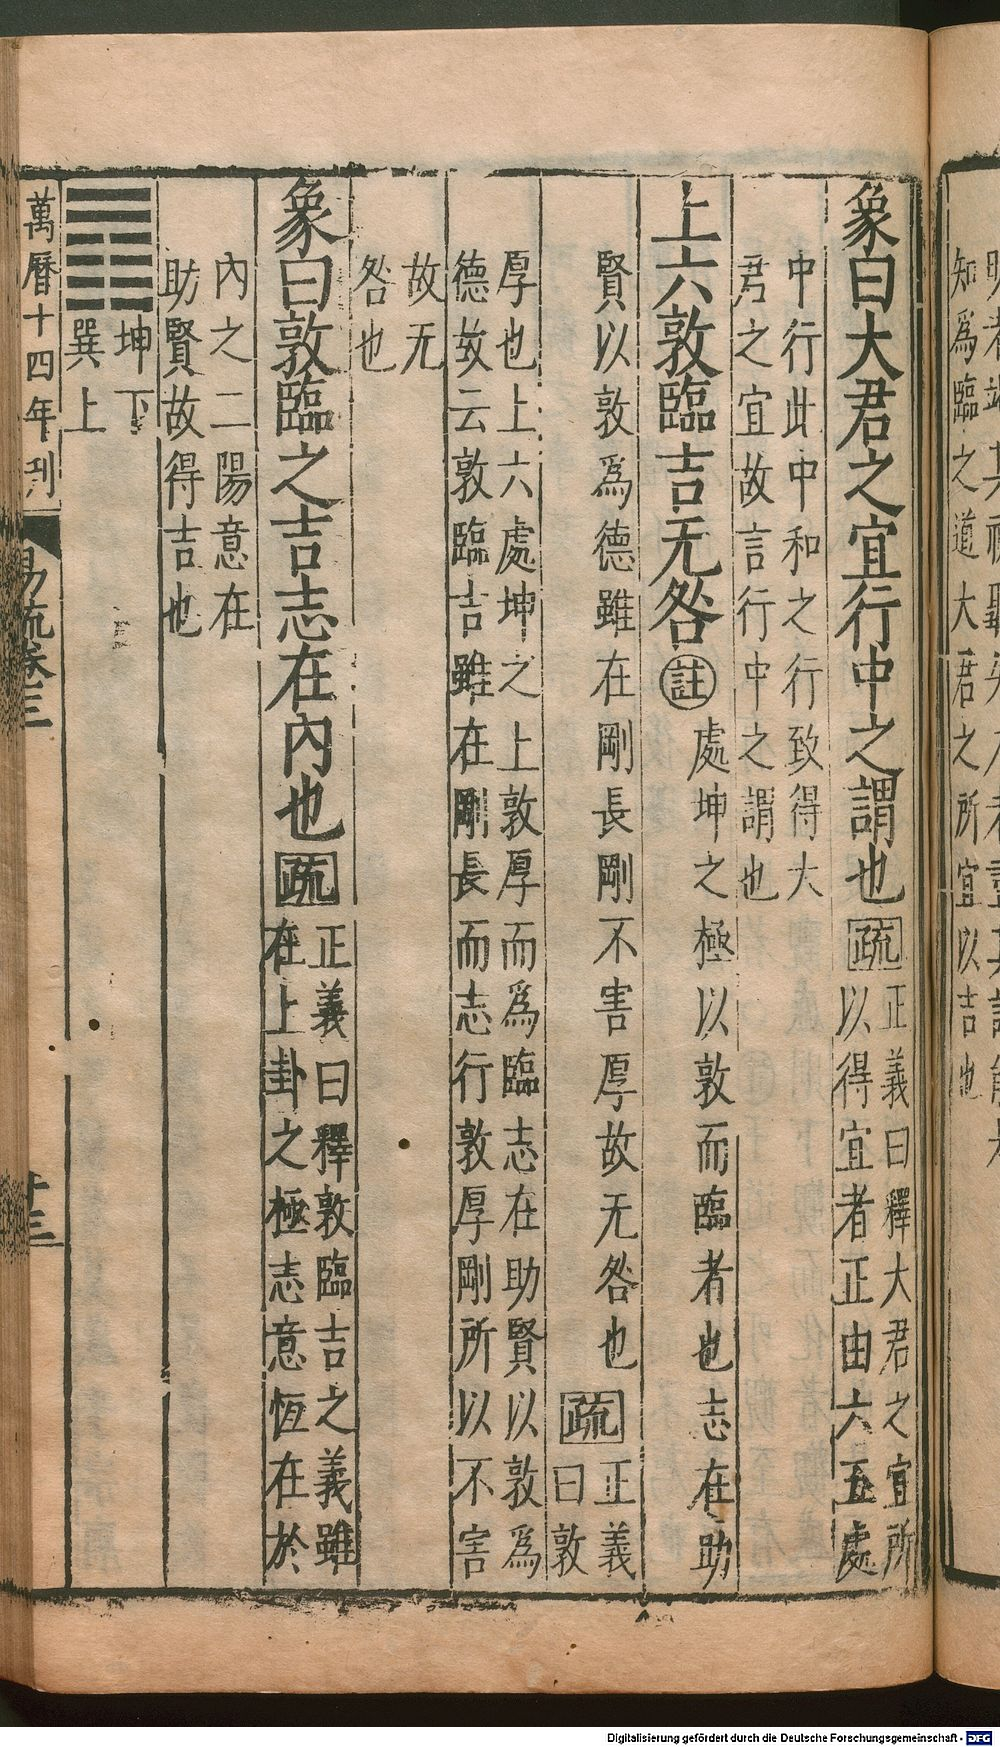 知為臨之道大君之所宜以吉也
象曰大君之宜行中之謂也疏正義曰釋大君之宜所
以得宜者正由六五處
中行此中和之行致得大
君之宜故言行中之謂也
上六敦臨吉无咎註處坤之極以敦而臨者也志在助
賢以敦為德雖在剛長剛不害厚故无咎也疏正義
曰敦
厚也上六處坤之上敦厚而為臨志在助賢以敦為
德故云敦臨吉雖在剛長而志行敦厚剛所以不害
故无
咎也
象曰敦臨之吉志在內也疏正義曰釋敦臨吉之義雖
在上卦之極志意恆在於
內之二陽意在
助賢故得吉也
坤下
巽上
萬曆十四年刊
易疏卷三
十三
Digitalisierung gefördert durch die Deutsche Forschungsgemeinschaft - DFG